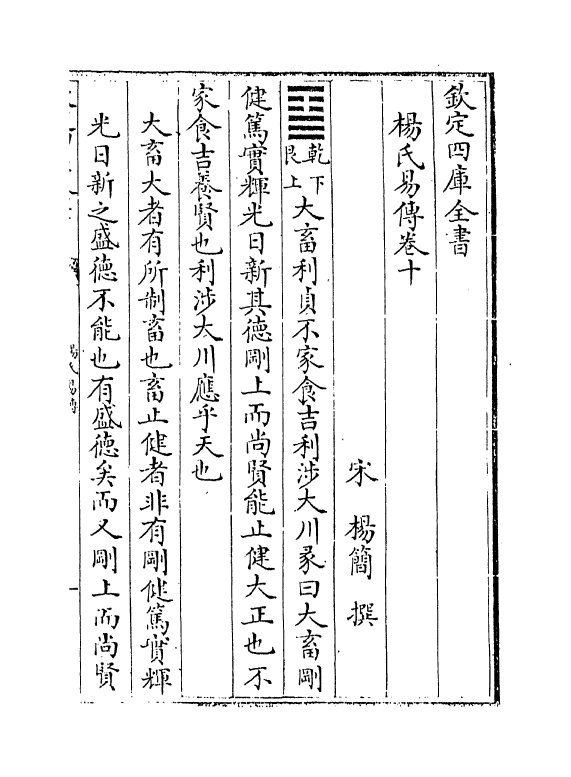 欽定四庫全書
楊氏易傳卷十
宋 楊簡 撰
乾下
艮上
大畜利貞不家食吉利涉大川彖曰大畜剛
健篤實輝光日新其德剛上而尚賢能止健大正也不
家食吉養賢也利涉大川應乎天也
大畜大者有所制畜也畜止健者非有剛健篤實輝
光日新之盛德不能也有盛德矣而又剛上而尚賢
楊氏易傳
一